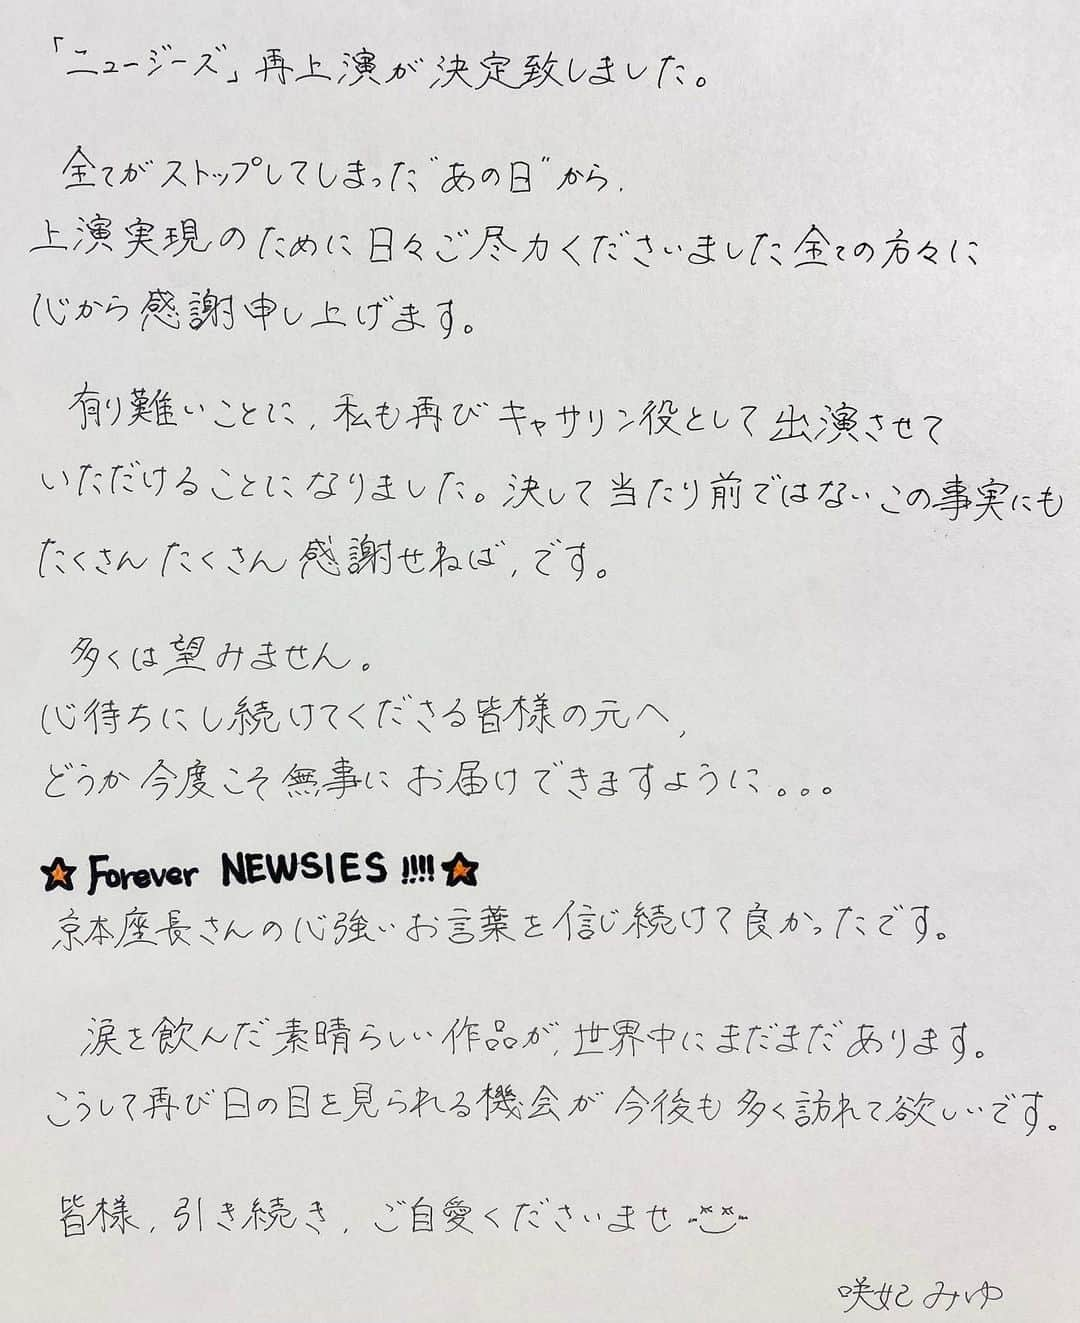 「ニュージーズ」再上演が決定致しました。
全てがストップしてしまった"あの日"から、
上演実現のために日々ご尽力くださいました全ての方々に
心から感謝申し上げます。
有り難いことに、私も再びキャサリン役として出演させて
いただけることになりました。決して当たり前ではないこの事実にも
たくさんたくさん感謝せねば、です。
多くは望みません。
心待ちにし続けてくださる皆様の元へ、
どうか今度こそ無事にお届けできますように。。。
★Forever NEWSIES!!!!★
京本座長さんの心強いお言葉を信じ続けて良かったです。
涙を飲んだ素晴らしい作品が、世界中にまだまだあります。
こうして再び日の目を見られる機会が今後も多く訪れて欲しいです。
皆様、引き続き、ご自愛くださいませ
咲妃みゆ